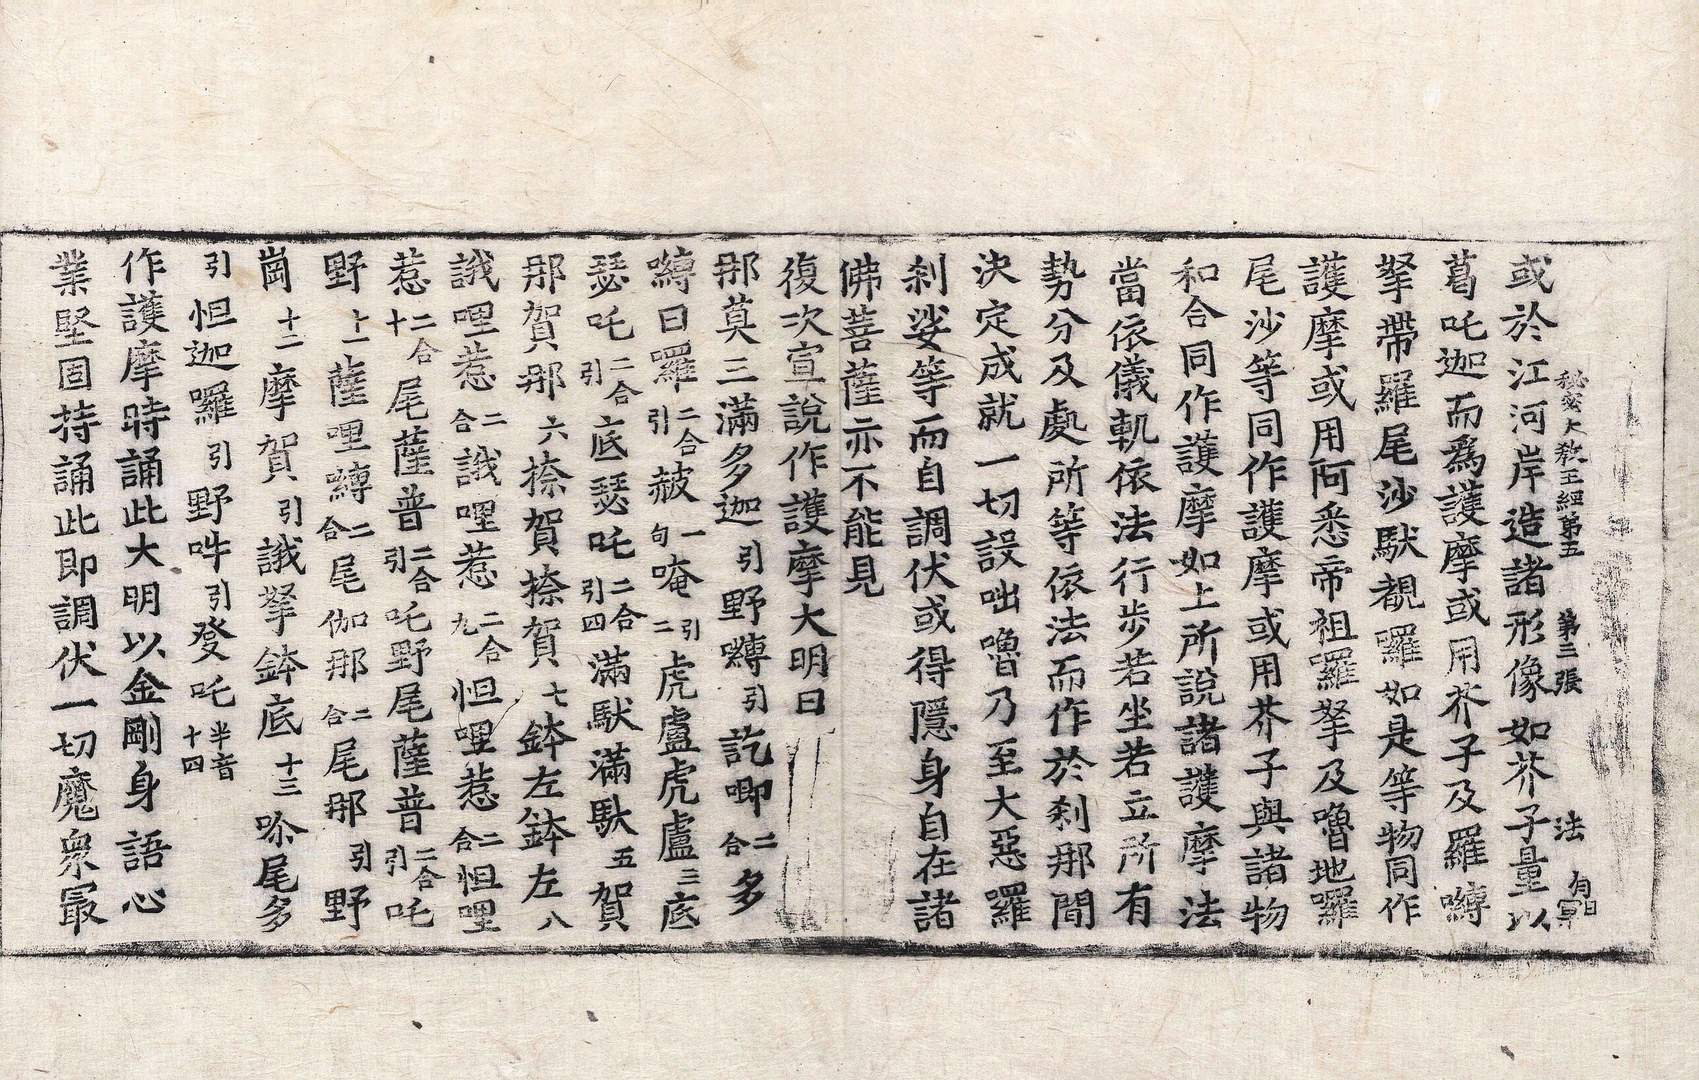 秘密大教王經第五　第三張　法
或於江河岸造諸形像如芥子量以
葛吒迦而爲護摩或用芥子及羅嚩
拏帶羅尾沙馱覩羅如是等物同作
護摩或用阿悉帝祖羅拏及嚕地羅
尾沙等同作護摩或用芥子與諸物
和合同作護摩如上所說諸護摩法
當依儀軌依法行步若坐若立所有
勢分及處所等依法而作於刹那間
決定成就一切設咄嚕乃至大惡羅
刹娑等而自調伏或得隱身自在諸
佛菩薩亦不能見
復次宣說作護摩大明曰
那莫三滿多迦引野嚩引訖唧二合多
嚩曰囉二合引赧一句唵引二虎盧虎盧三底
瑟吒二合引底瑟吒二合引四滿馱滿馱五賀
那賀那六捺賀捺賀七鉢左鉢左八
誐哩惹二合誐哩惹二合九怛哩惹二合怛哩
惹二合十尾薩普二合引吒野尾薩普二合引吒
野十一薩哩嚩二合尾伽那二合尾那引野
崗十二摩賀引誐拏鉢底十三𠷑尾多
引怛迦囉引野吽引發吒半音十四
作護摩時誦此大明以金剛身語心
業堅固持誦此即調伏一切魔衆最